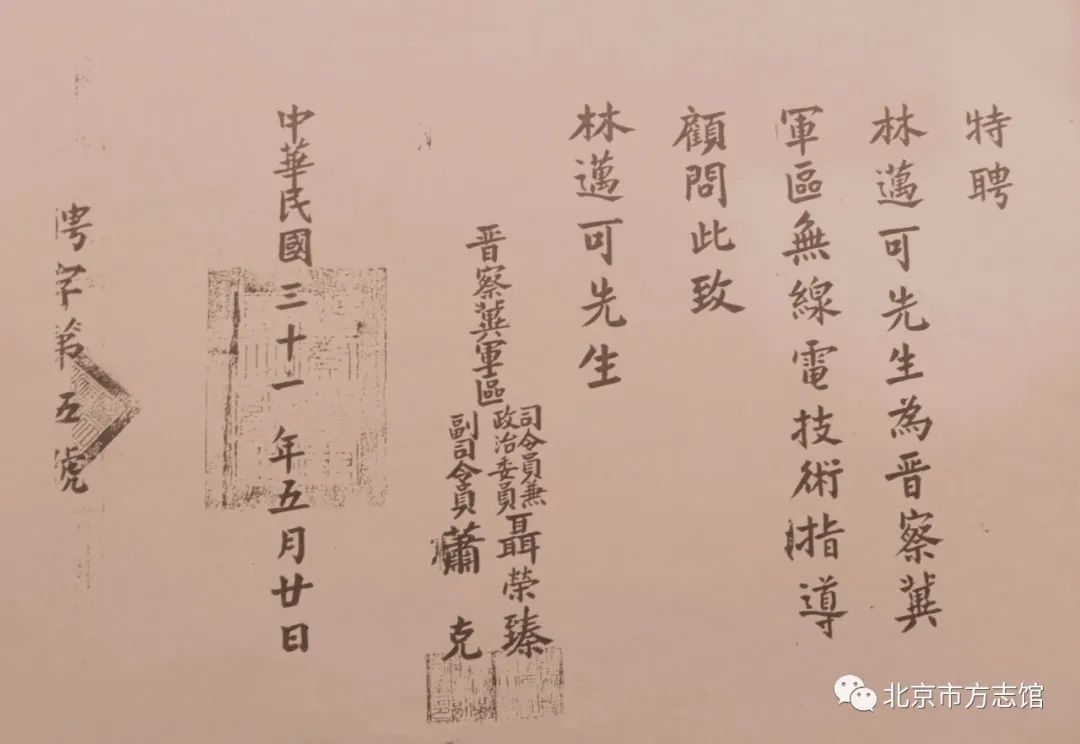 特聘
林邁可先生為晋察冀
軍區無線電技術指導
顧問此致
林邁可先生
晋察冀軍區
司令員兼
政治委員
聶榮臻
副司令員
蕭克
中華民國三十一年五月廿日
聘字第五號
北京市方志馆